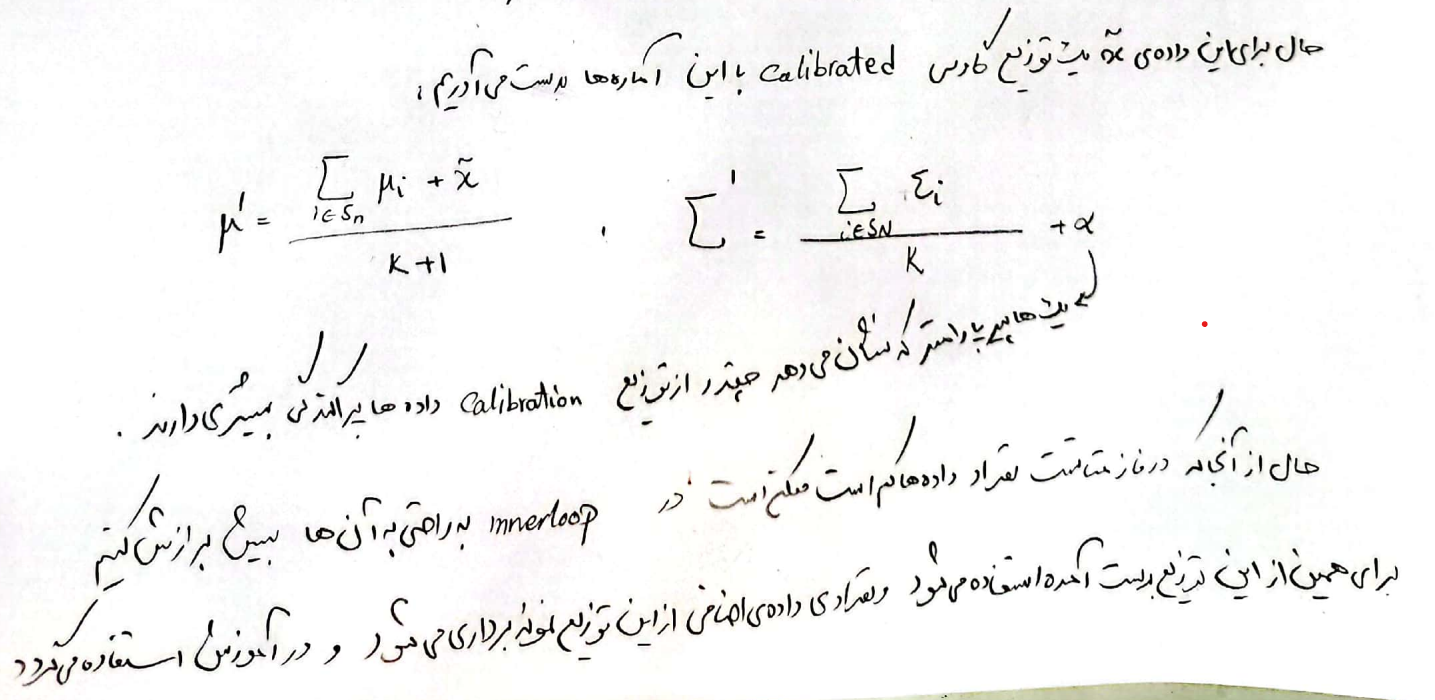 حال برای این داده‌ی x̃ یک توزیع گاوسی calibrated با این آماره‌ها بدست می‌آوریم:
μ' = (∑_{i∈S_n} μ_i + x̃) / (K+1) , ∑' = (∑_{i∈S_N} Σ_i) / K + α
یک هایپرپارامتر که نشان می‌دهد چقدر از توزیع calibration داده‌ها پراکندگی بیشتری دارند.
حال از آنجا که در فاز متاتست تعداد داده‌ها کم است ممکن است در innerloop به راحتی به آن‌ها بیش برازش کنیم
برای همین از این توزیع بدست آمده استفاده می‌شود و تعدادی داده‌ی اضافی از این توزیع نمونه برداری می‌شود و در آموزش استفاده می‌گردد